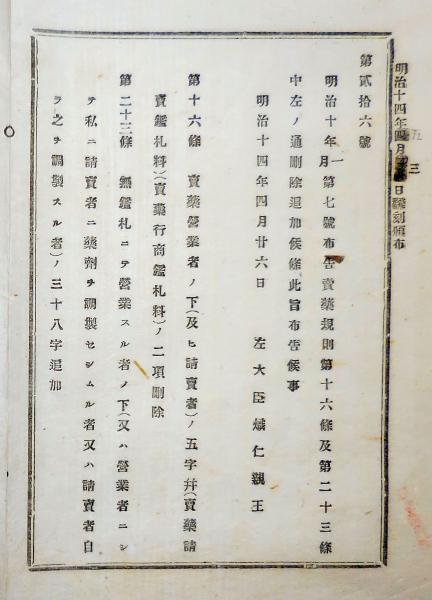 明治十四年四月 日飜刻頒布
五
三
第貳拾六號
明治十年一月第七號布告賣藥規則第十六條及第二十三條
中左ノ通刪除追加候條此旨布告候事
明治十四年四月廿六日　左大臣熾仁親王
第十六條　賣藥營業者ノ下(及ヒ請賣者)ノ五字幷(賣藥請
賣鑑札料)(賣藥行商鑑札料)ノ二項刪除
第二十三條　無鑑札ニテ營業スル者ノ下(又ハ營業者ニシ
テ私ニ請賣者ニ藥劑ヲ調製セシムル者又ハ請賣者自
ラ之ヲ調製スル者)ノ三十八字追加